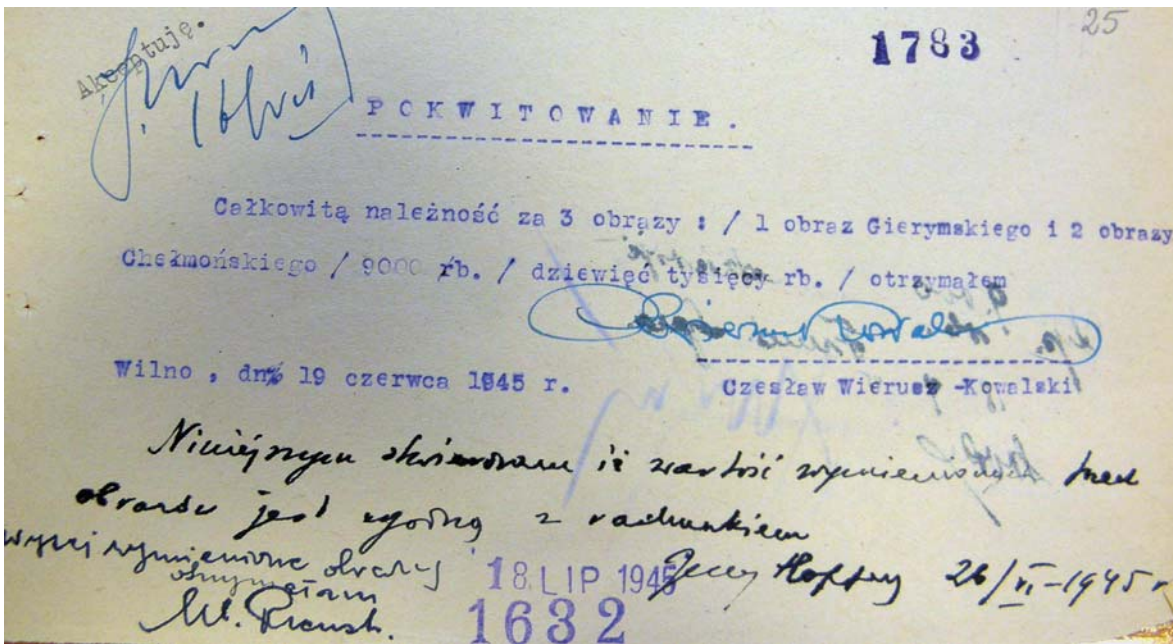 25
1783
Akceptuję.
POKWITOWANIE.
Całkowitą należność za 3 obrazy : / 1 obraz Gierymskiego i 2 obrazy
Chełmońskiego / 9000 rb. / dziewięć tysięcy rb. / otrzymałem
Wilno , dn 19 czerwca 1945 r.
Czesław Wierusz -Kowalski
Niniejszym stwierdzam iż wartość wymienionych trzech
obrazów jest zgodną z rachunkiem
Jerzy Hoppen 26/VI-1945 r.
wyżej wymienione obrazy
otrzymałam
18. LIP 1945
1632